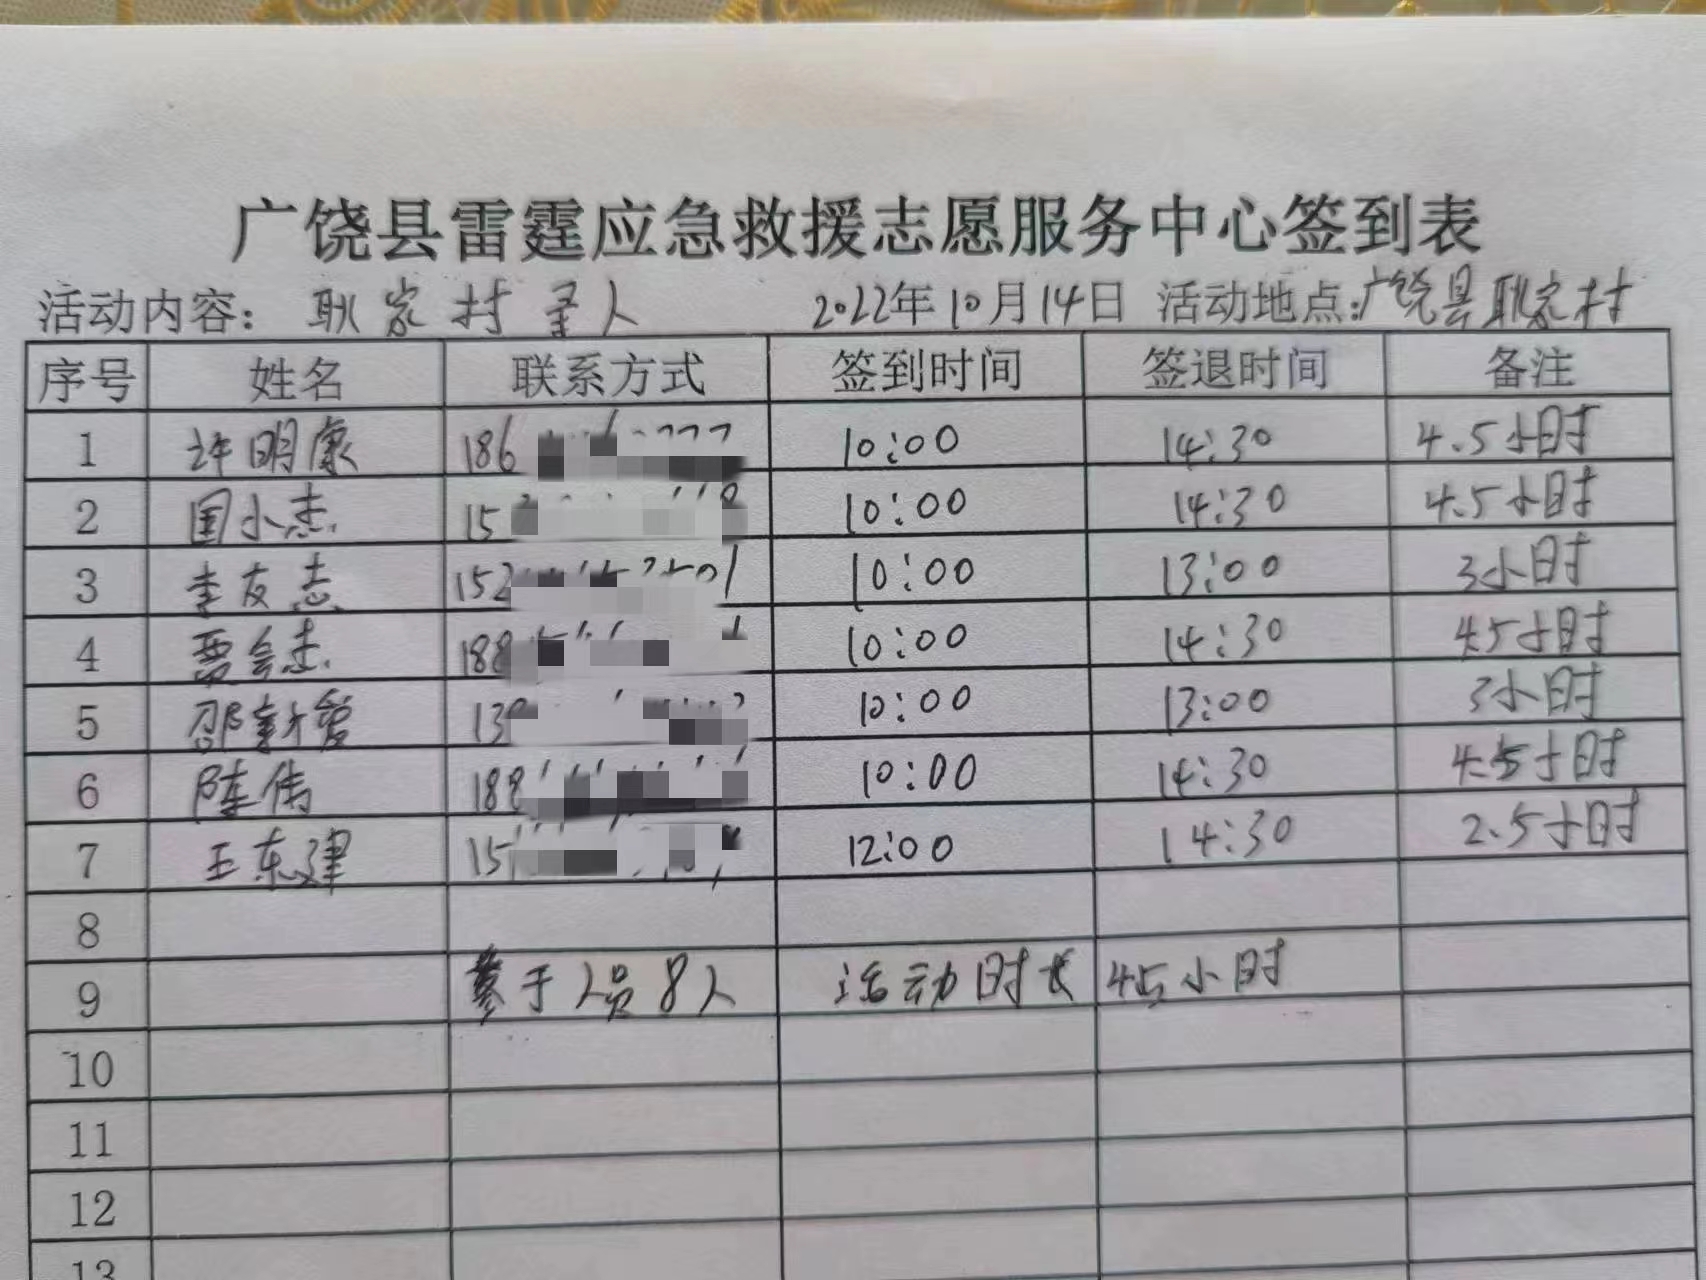 广饶县雷霆应急救援志愿服务中心签到表
活动内容: 耿家村寻人 2022年10月14日 活动地点:广饶县耿家村
序号 姓名 联系方式 签到时间 签退时间 备注
1 许明康 186 10:00 14:30 4.5小时
2 国小杰 15 10:00 14:30 4.5小时
3 李友志 152 10:00 13:00 3小时
4 贾会杰 188 10:00 14:30 4.5小时
5 邵 13 10:00 13:00 3小时
6 陆伟 188 10:00 14:30 4.5小时
7 王东建 15 12:00 14:30 2.5小时
8
9 参于人员8人 活动时长 4.5小时
10
11
12
13